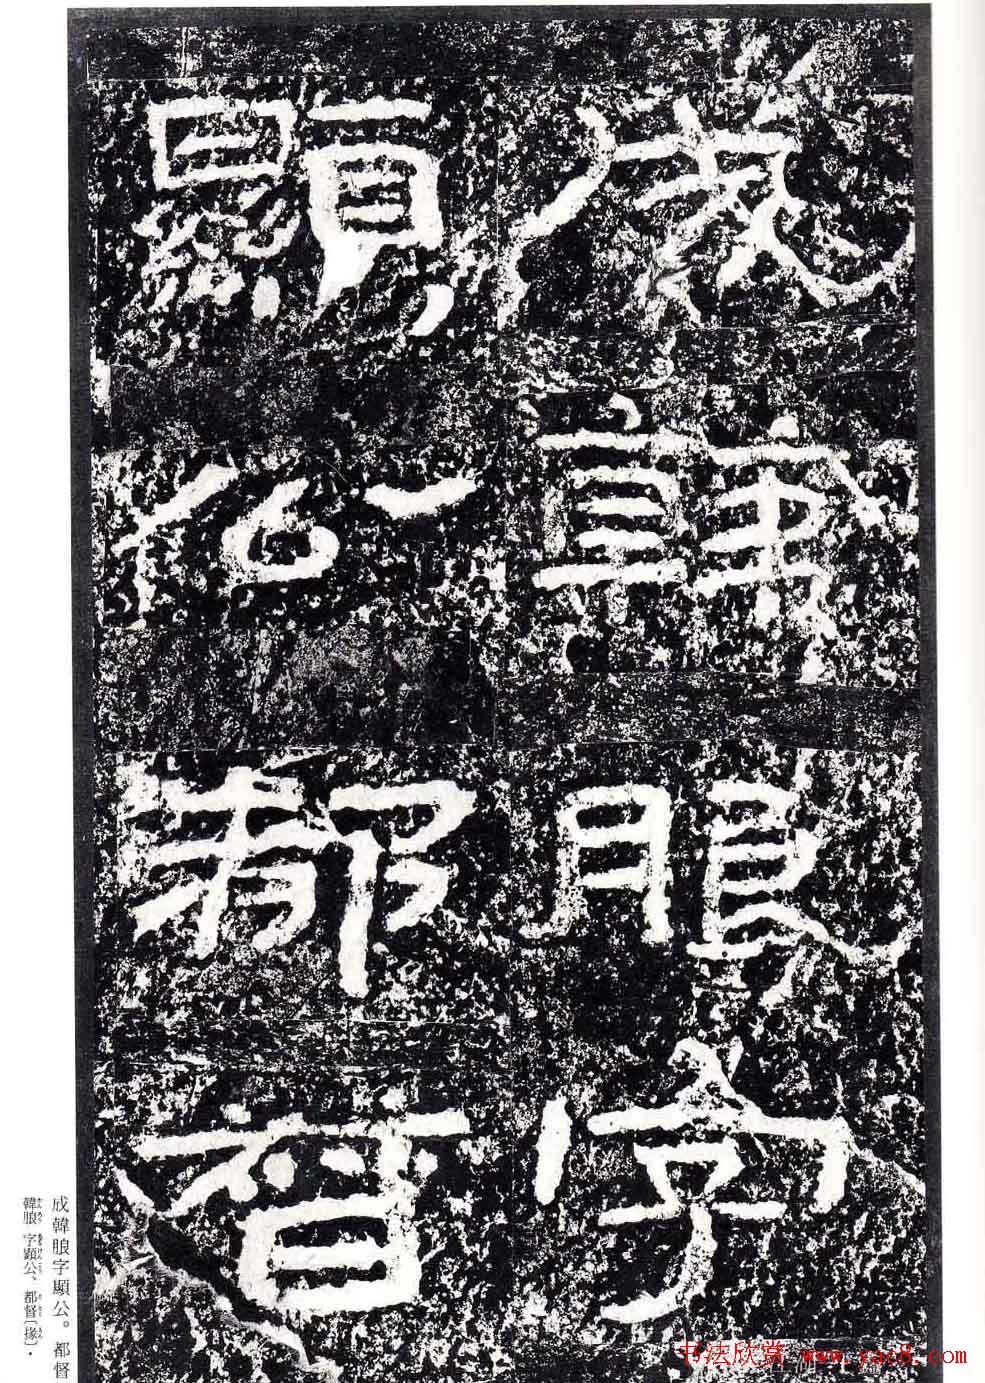 成韓朖字
顯公都督
成韓朖字顯公。都督
韓朖字顯公、都督〔掾〕.
书法欣赏 www.yac8.com